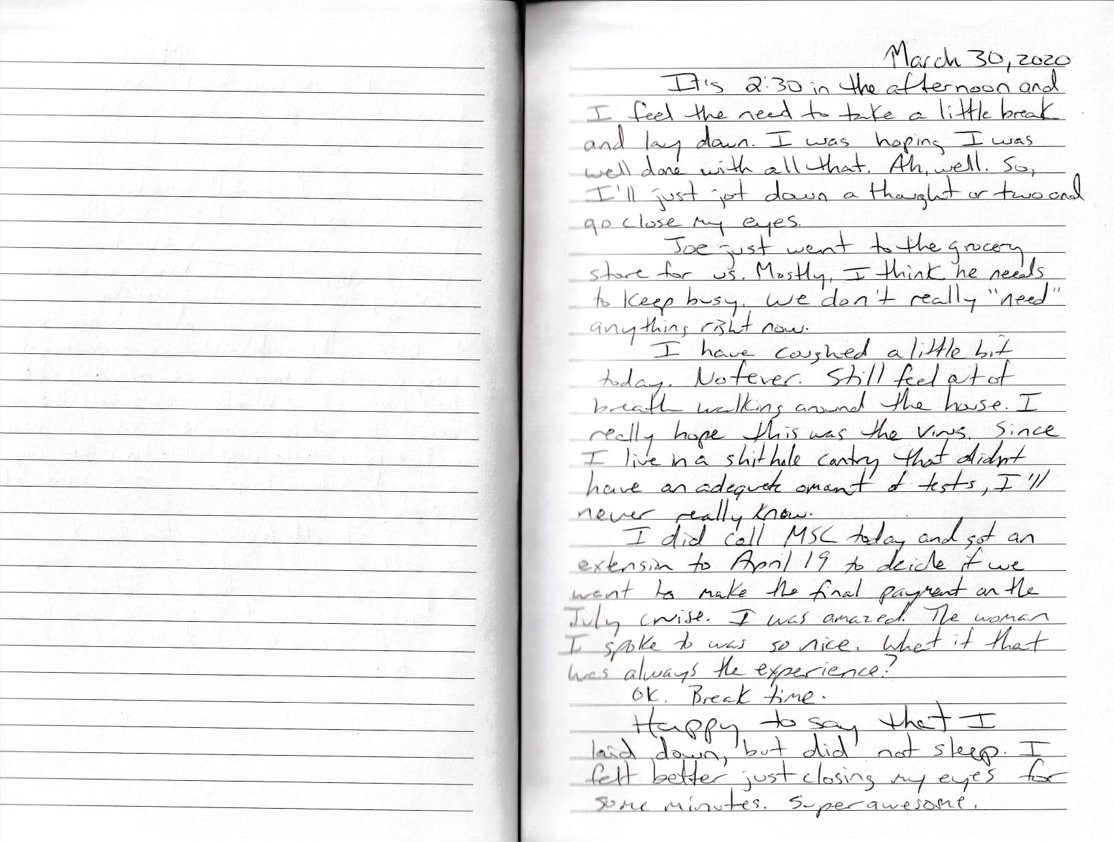 March 30, 2020
It's 2:30 in the afternoon and
I feel the need to take a little break
and lay down. I was hoping I was
well done with all that. Ah, well. So,
I'll just jot down a thought or two and
go close my eyes.
Joe just went to the grocery
store for us. Mostly, I think he needs
to keep busy. We don't really "need"
anything right now.
I have coughed a little bit
today. No fever. Still feel out of
breath walking around the house. I
really hope this was the virus. Since
I live in a shithole country that didn't
have an adequate amount of tests, I'll
never really know.
I did call MSC today and got an
extension to April 19 to decide if we
want to make the final payment on the
July cruise. I was amazed. The woman
I spoke to was so nice. What if that
was always the experience?
OK. Break time.
Happy to say that I
laid down, but did not sleep. I
felt better just closing my eyes for
some minutes. Super awesome.